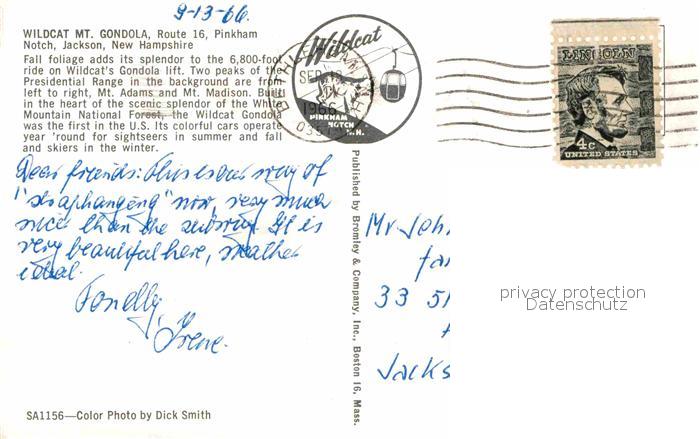 9-13-66.
WILDCAT MT. GONDOLA, Route 16, Pinkham
Notch, Jackson, New Hampshire
Fall foliage adds its splendor to the 6,800-foot
ride on Wildcat's Gondola lift. Two peaks of the
Presidential Range in the background are from
left to right, Mt. Adams and Mt. Madison. Built
in the heart of the scenic splendor of the White
Mountain National Forest, the Wildcat Gondola
was the first in the U.S. Its colorful cars operate
year 'round for sightseers in summer and fall
and skiers in the winter.
Dear friends: This is our way of
"straphanging" now, very much
nicer than the subway. It is
very beautiful here, weather
ideal.
Fondly,
Irene.
SA1156—Color Photo by Dick Smith
Published by Bromley & Company, Inc., Boston 16, Mass.
Wildcat
PINKHAM
NOTCH
N.H.
SEP
1966
LINCOLN
4c
UNITED STATES
Mr John
33 51
Jacks
privacy protection
Datenschutz